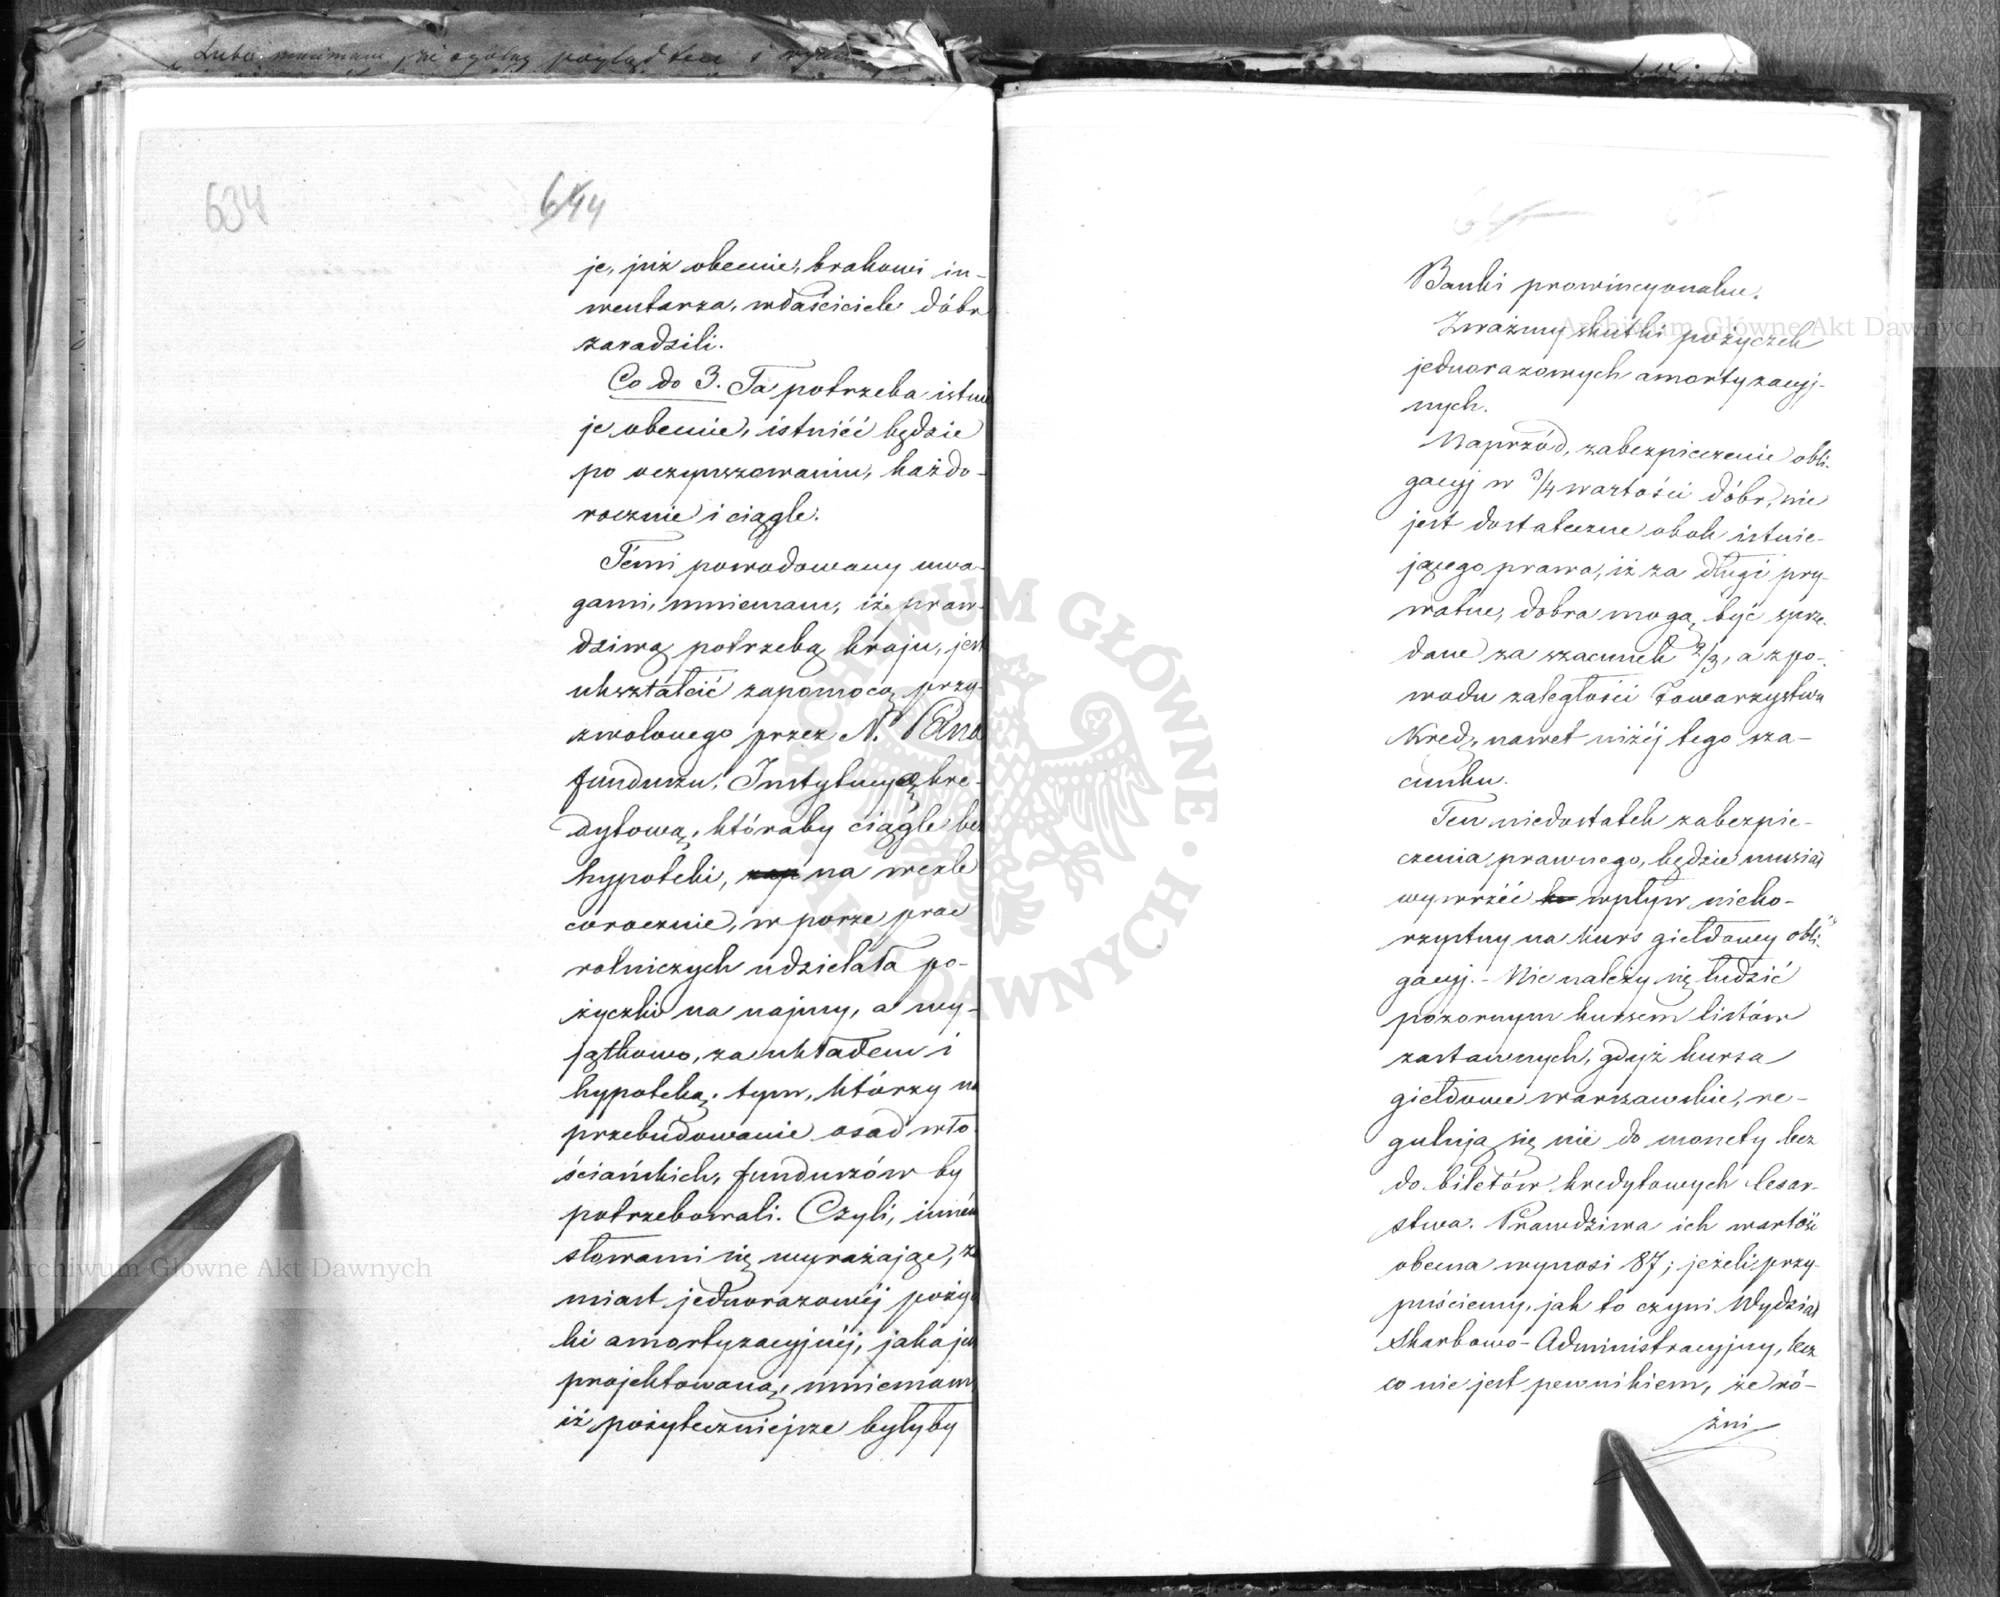 Lubo mniemam, że ogólny pogląd ten i
634
644
je, już obecnie, brakowi in-
wentarza, właściciele dóbr
zaradzili.
Co do 3. Ta potrzeba istnie
je obecnie, istnieć będzie
po oczynszowaniu, każdo-
rocznie i ciągle.
Témi powodowany uwa-
gami, mniemam, iż praw-
dziwą potrzebą kraju, jest
ukształcić zapomocą przy-
zwolonego przez N. Pana
funduszu, Instytucyą kre-
dytową, któraby ciągle bez
hypoteki, na weksle
corocznie, w porze prac
rolniczych udzielała po-
życzki na najmy, a wy-
jątkowo, za układem i
hypoteką, tym, którzy na
przebudowanie osad wło-
ściańskich, funduszów by
potrzebowali. Czyli, innémi
słowami się wyrażając, za
miast jednorazowéj pożycz
ki amortyzacyjnéj, jaka jest
projektowaną, mniemam,
iż pożyteczniejsze byłyby
Banki prowincyonalne.
Zważmy skutki pożyczek
jednorazowych amortyzacyj-
nych.
Naprzód, zabezpieczenie obli-
gacyj w 3/4 wartości dóbr, nie
jest dostateczne obok istnie-
jącego prawa, iż za długi pry-
watne, dobra mogą być sprze-
dane za szacunek 2/3, a z po-
wodu zaległości Towarzystwa
Kred., nawet niżéj tego sza-
cunku.
Ten niedostatek zabezpie-
czenia prawnego, będzie musiał
wywrzéć wpływ nieko-
rzystny na kurs giełdowy obli-
gacyj. - Nie należy się łudzić
pozornym kursem listów
zastawnych, gdyż kursa
giełdowe warszawskie, re-
gulują się nie do monety lecz
do biletów kredytowych Cesar-
stwa. Prawdziwa ich wartość
obecna wynosi 87; jeżeli przy-
puściemy, jak to czyni Wydział
Skarbowo-Administracyjny, lecz
co nie jest pewnikiem, że ró-
żni
Archiwum Główne Akt Dawnych
Archiwum Główne Akt Dawnych
ARCHIWUM GŁÓWNE AKT DAWNYCH